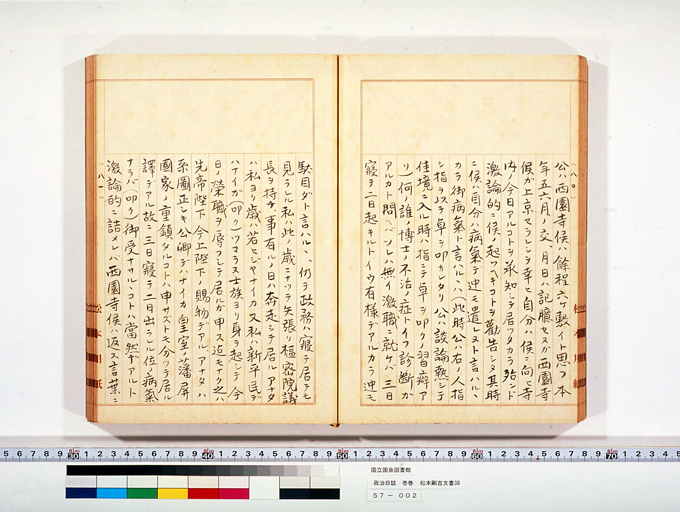 (八〇)
公ハ西園寺侯ハ餘程六ヶ敷イト思フ本
年五六月ノ交月日ハ記臆セスガ西園寺
侯ガ上京セラレシヲ幸ヒ自分ハ侯ニ向ヒ寺
内ノ今日アルコトヲ承知シテ居ツタカラ殆ンド
激論的ニ侯ノ起ツヘキコトヲ勸告シタ其時
ニ侯ハ自分ハ病氣デ迚モ遣レヌト言ハル、
カラ御病氣ト言ハル、ハ(此時公右ノ人指
シ指ヲ以テ卓ヲ叩カレタリ公ハ談論熟シテ
佳境ニ入ル時ハ指ニテ卓ヲ叩クノ習癖ア
リ)何ノ誰ノ博士ノ不治ノ症トイフ診斷ガ
アルカト問ヘバソレハ無イ激職ニ就ケハ三日
寢テ二日起キルトイウ有樣デアルカラ迚モ
(八一)
駄目ダト言ハル、仍ラ政務ハ寢テ居テモ
見ラレル私ハ此ノ歳ニナツテ矢張リ樞密院議
長ヲ持チ事有ルノ日ハ奔走シテ居ルアナタ
ハ私ヨリ歳ハ若モジヤナイカ又私ハ新平民デ
ハナイガ(叩ク)ツマラヌ士族ヨリ身ヲ起シテ今
日ノ榮職ヲ辱フシテ居ルガ申ス迄モナク之ハ
先帝陛下今上陛下ノ賜物デアルアナタハ
系圖正シキ公卿デハナイカ皇室ノ藩屏
國家ノ重鎭タルコトハ申サズトモ分ツテ居ル
譯デアル故ニ三日寢テ二日出ラレル位ノ病氣
ナラバ(叩ク)御受ナサル、コトハ當然デアルト
激論的ニ詰メレバ西園寺侯ノ返ス言葉ニ
国立国会図書館
政治日誌 壱巻 松本剛吉文書38
57-002